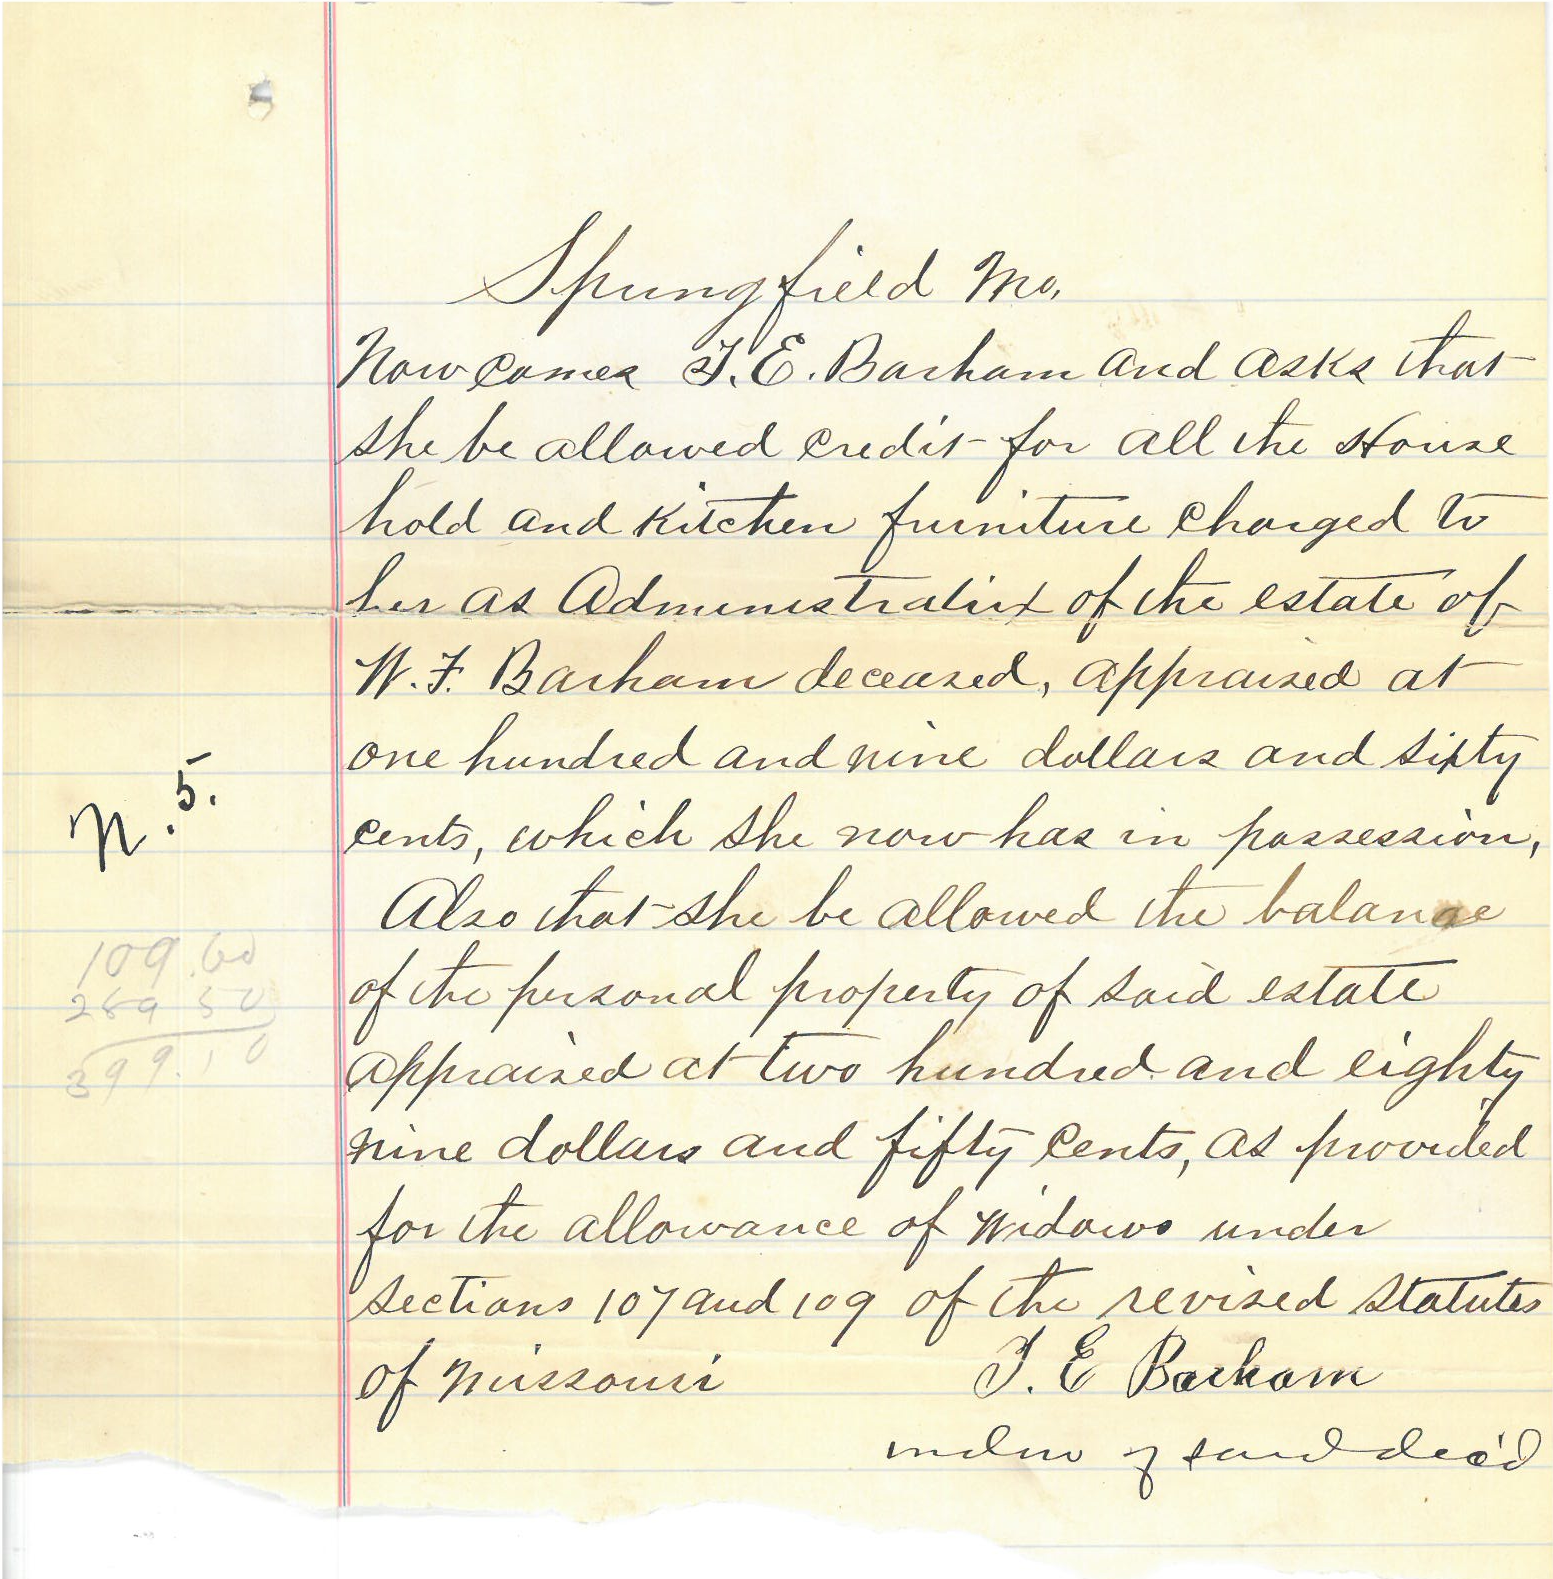 Springfield Mo.
Now comes T. E. Barham and asks that
she be allowed credit for all the House
hold and Kitchen furniture charged to
her as Administratirx of the estate of
W. F. Barham deceased, appraised at
one hundred and nine dollars and sixty
cents, which she now has in possession,
Also that she be allowed the balance
of the personal property of said estate
appraised at two hundred and eighty
nine dollars and fifty cents, as provided
for the allowance of Widows under
sections 107 and 109 of the revised statutes
of Missouri
T. E Barham
widow of said dec'd
N. 5.
109.60
289 50
399.10